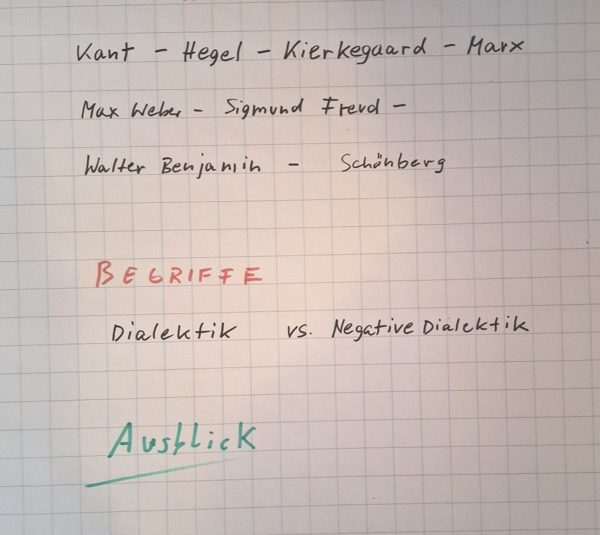 Kant - Hegel - Kierkegaard - Marx
Max Weber - Sigmund Freud -
Walter Benjamin - Schönberg
BEGRIFFE
Dialektik vs. Negative Dialektik
Ausblick